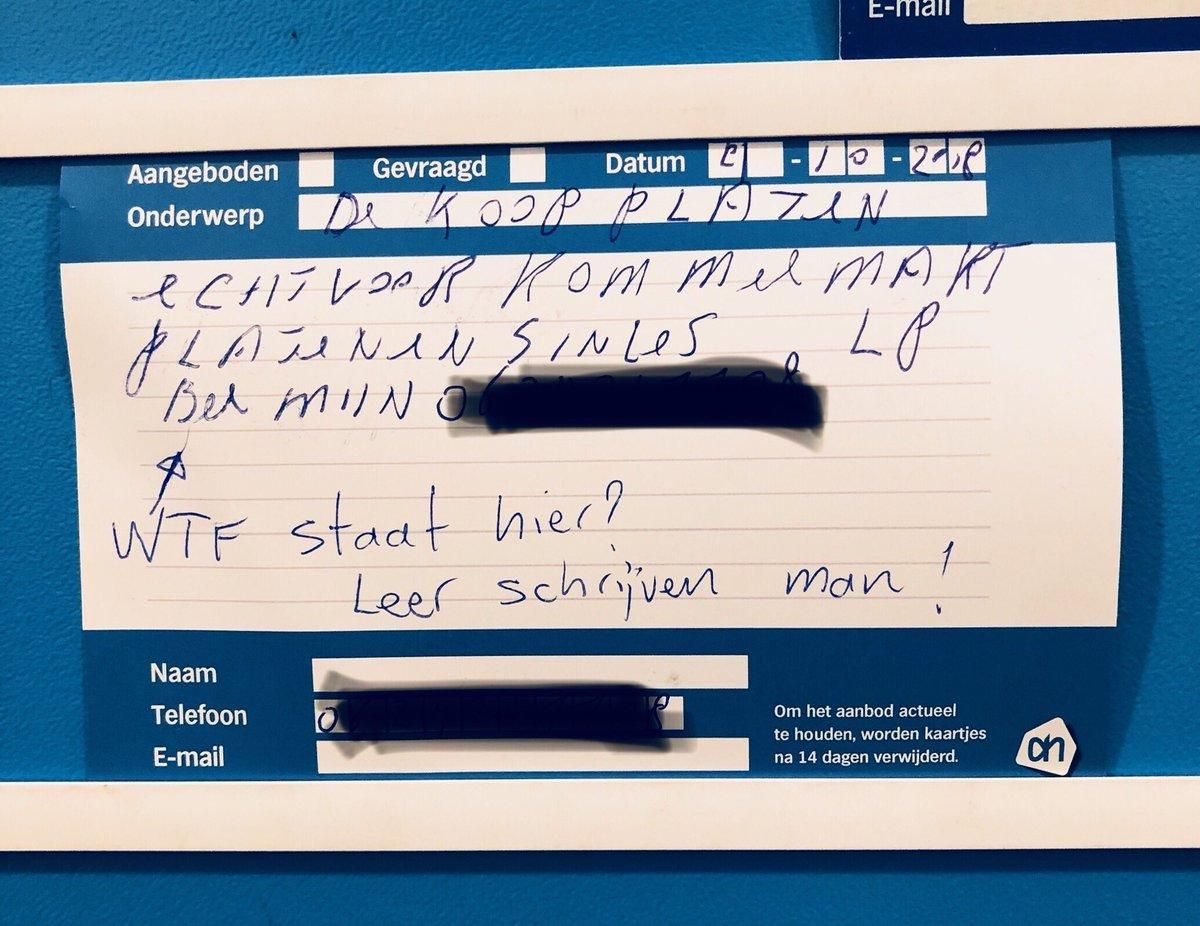 E-mail
Aangeboden Gevraagd Datum - 10 - 2018
Onderwerp De KOOP PLATEN
eCHT VOOR KOMMelMAKT
PLATeNeN SINLeS LP
Bel MIJN 06
WTF staat hier?
Leer schrijven man!
Naam
Telefoon 0
E-mail
Om het aanbod actueel
te houden, worden kaartjes
na 14 dagen verwijderd.
ah